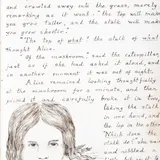 and crawled away into the grass, merely
remarking as it went: "the top will make
you grow taller, and the stalk will make
you grow shorter."
"The top of what? the stalk of what?"
thought Alice.
"Of the mushroom," said the caterpillar,
just as if she had asked it aloud, and in
another moment was out of sight.
Alice remained looking thoughtfully
at the mushroom for a minute, and then
picked it and carefully broke it in
taking the stalk
in one hand,
the top in the
Which does the
stalk do?" she
and nibbled